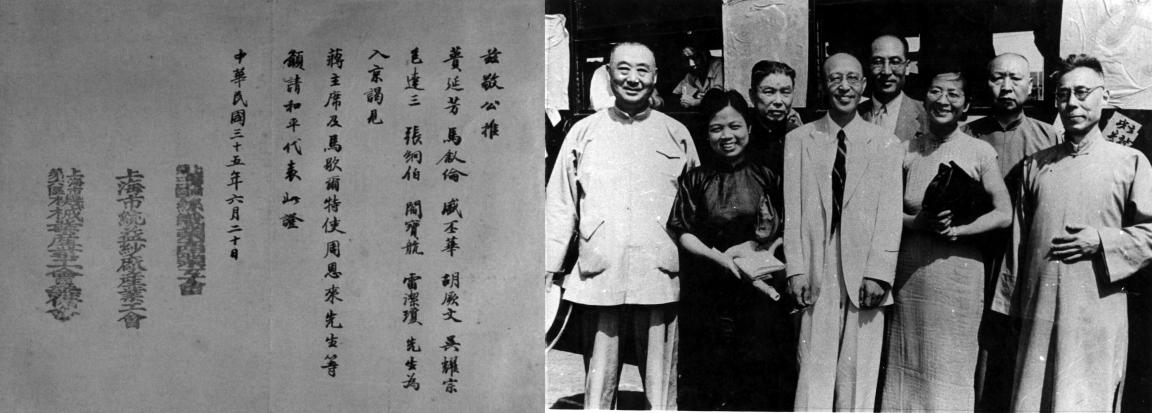 茲敬公推
蕢延芳 馬叙倫 盛丕華 胡厥文 吳耀宗
包達三 張絅伯 閻寶航 雷潔瓊 先生為
入京謁見
蔣主席及馬歇爾特使周恩來先生等
籲請和平代表此證
中華民國三十五年六月二十日
上海市統益紗廠產業工會